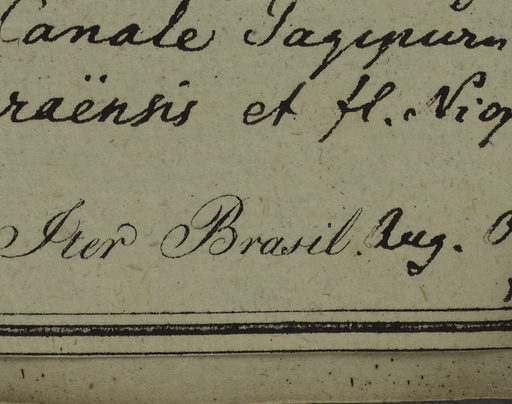 Canale Tagipuru
raënsis et fl. Nig
Iter Brasil. Aug.